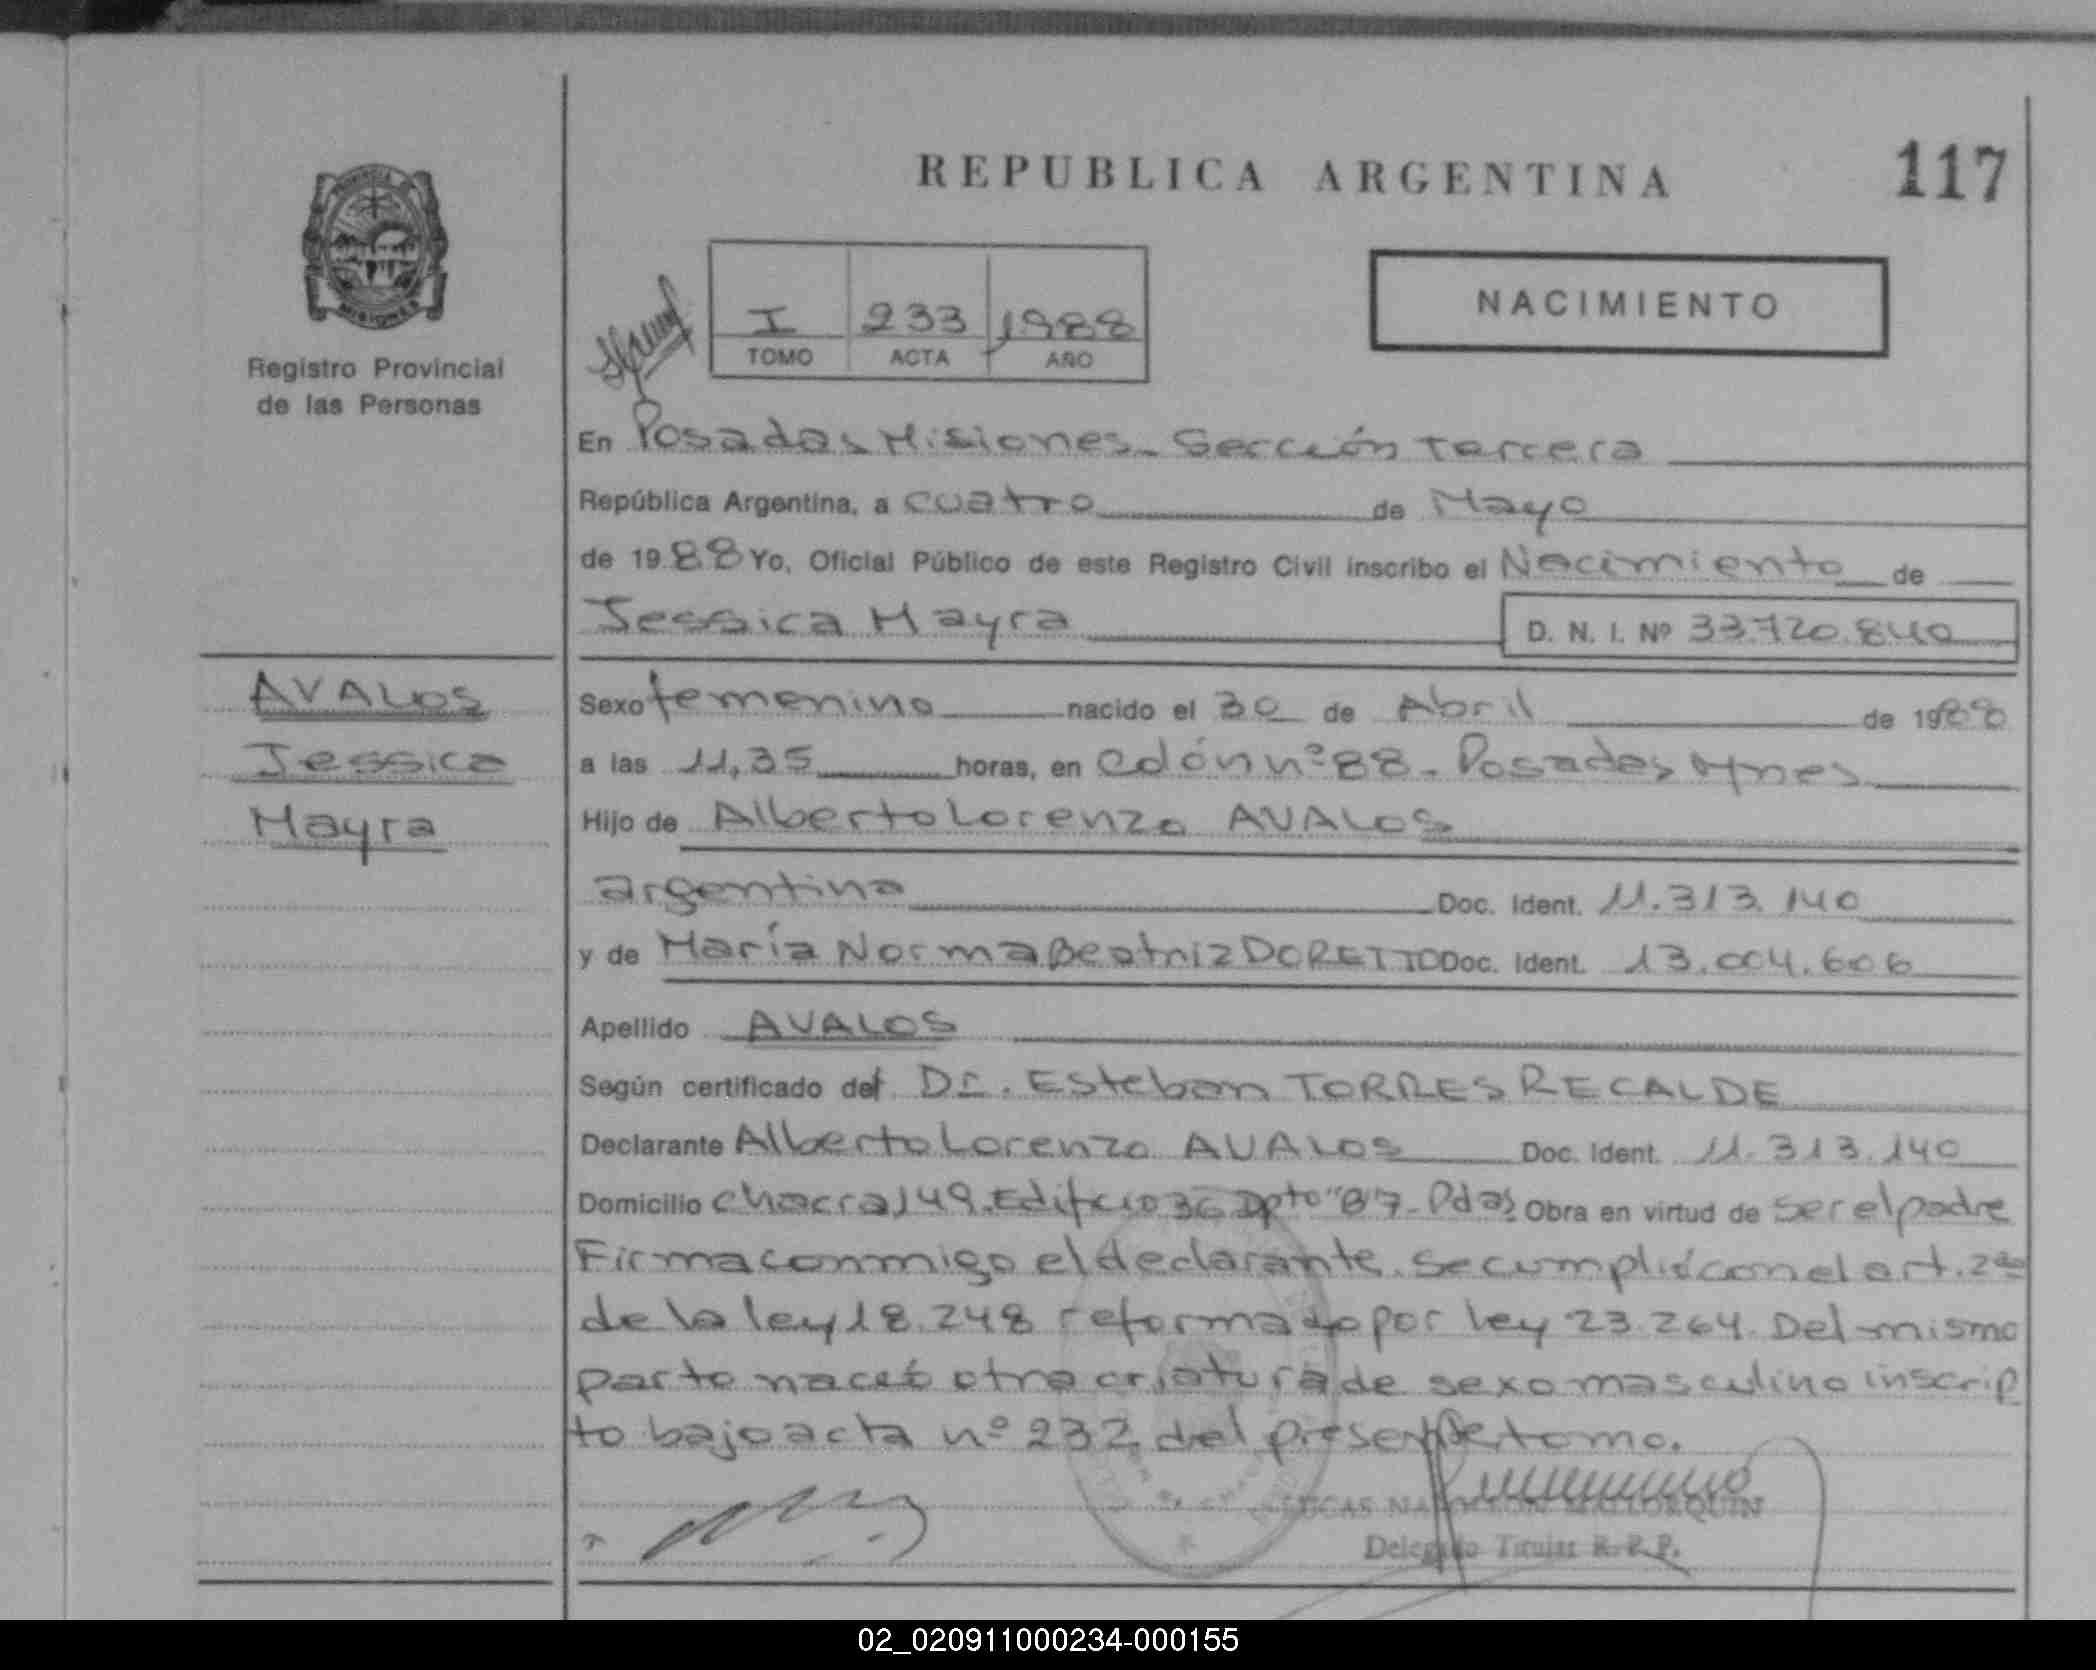 REPUBLICA ARGENTINA
117
PROVINCIA DE
MISIONES
Registro Provincial
de las Personas
I 233 1988
TOMO ACTA AÑO
NACIMIENTO
En Posadas Misiones - Sección Tercera
República Argentina, a cuatro de Mayo
de 1988 Yo, Oficial Público de este Registro Civil inscribo el Nacimiento de
Jessica Mayra D. N. I. Nº 33.720.840
AVALOS
Jessica
Mayra
Sexo femenino nacido el 30 de Abril de 1988
a las 11,35 horas, en Colón nº 88 - Posadas Mnes
Hijo de Alberto Lorenzo AVALOS
argentina Doc. Ident. 11.313.140
y de María Norma Beatriz DORETTO Doc. Ident. 13.004.606
Apellido AVALOS
Según certificado del Dr. Esteban TORRES RECALDE
Declarante Alberto Lorenzo AVALOS Doc. Ident. 11.313.140
Domicilio chacra 149. Edificio 36 Dpto "B"7 - Pdas Obra en virtud de ser el padre
Firma conmigo el declarante. Se cumplió con el art. 2do
de la ley 18.248 reformado por ley 23.264. Del mismo
parto nació otra criatura de sexo masculino inscrip
to bajo acta nº 232 del presente tomo.
LUCAS NAPOLEON MALLORQUIN
Delegado Titular R. P. P.
02_020911000234-000155